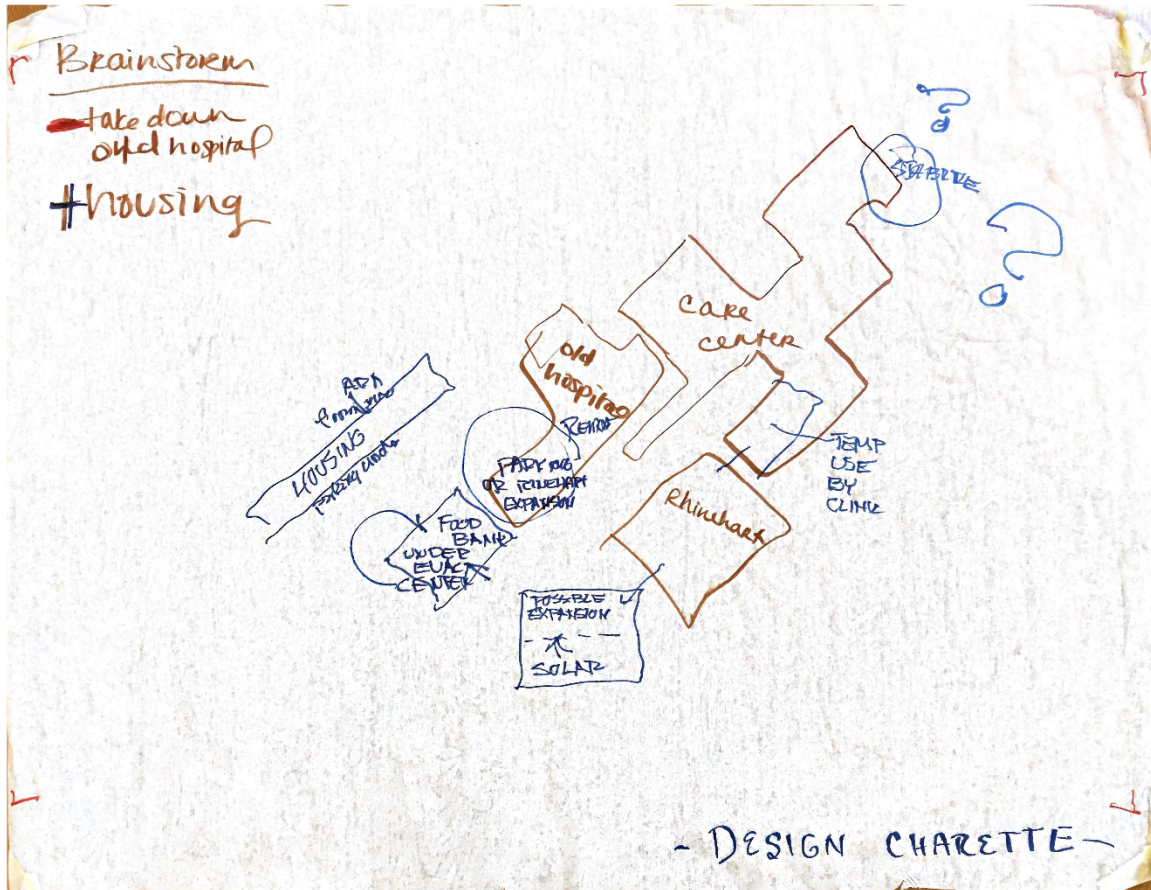 Brainstorm
- take down
old hospital
+ housing
Care
Center
old
hospital
Remov
PARKING
OR RINEHART
EXPANSION
ADA
HOUSING
parking under
FOOD
BANK
UNDER
EVAC
CENTER
Rhinehart
TEMP
USE
BY
CLINIC
POSSIBLE
EXPANSION
SOLAR
- DESIGN CHARETTE -